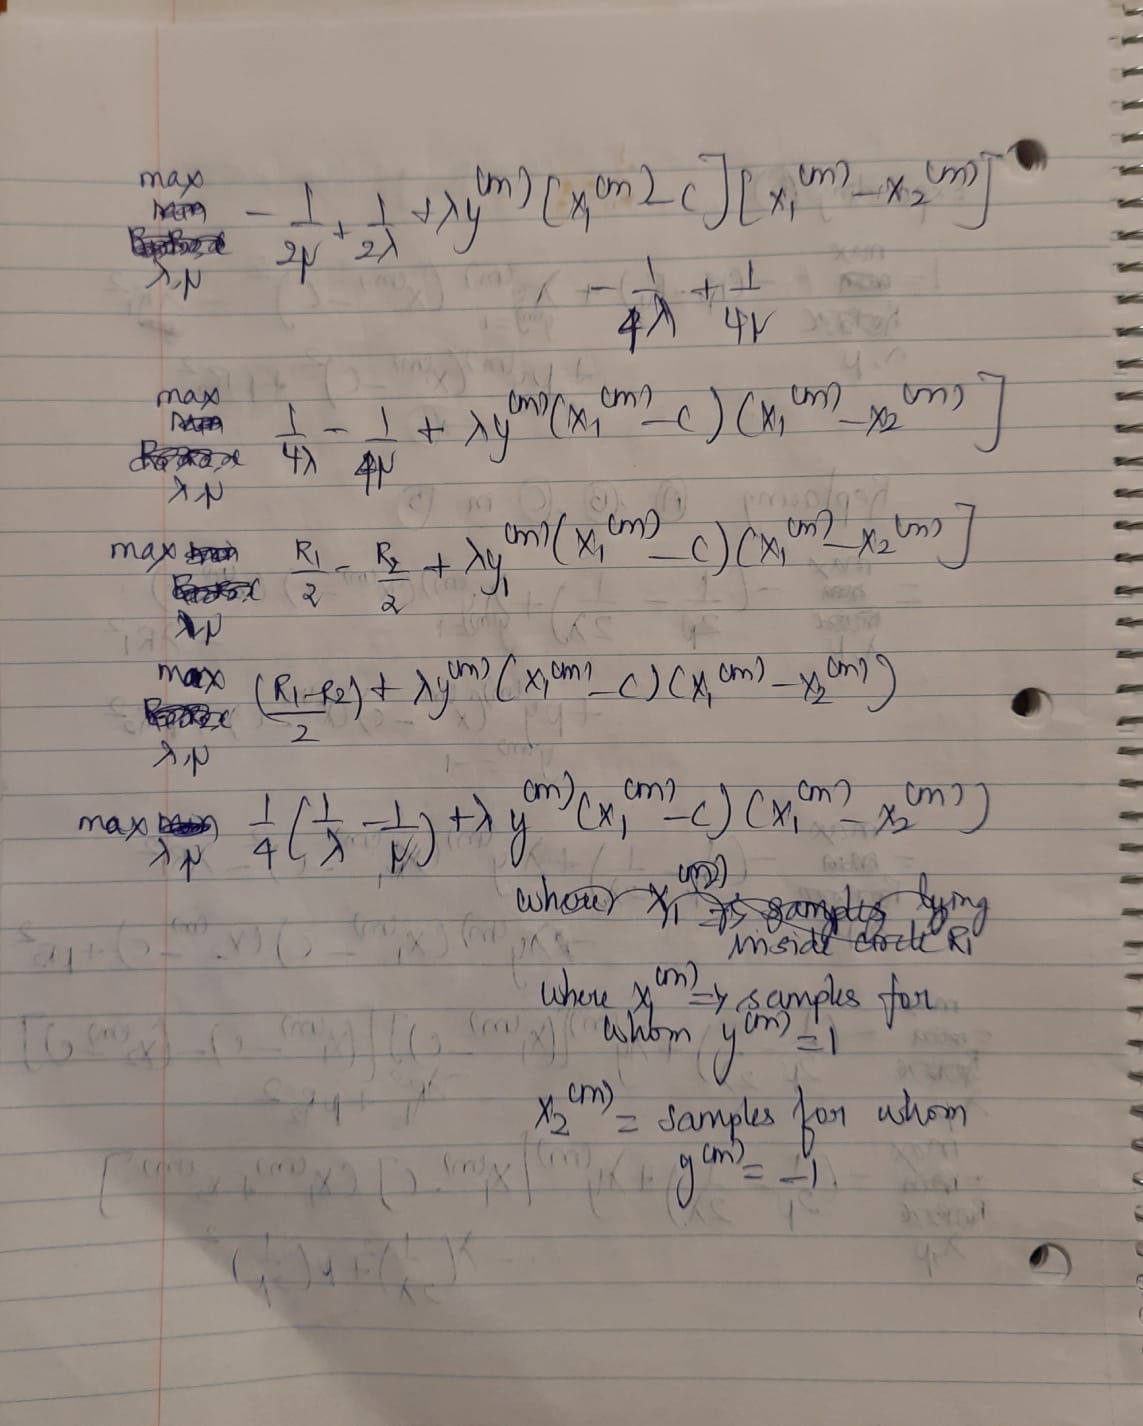 max
λ,μ - 1/2μ + 1/2λ + λy^(m) [x₁^(m) - c] [x₁^(m) - x₂^(m)]
- 1/4λ + 1/4μ
max
λ,μ 1/4λ - 1/4μ + λy^(m) (x₁^(m) - c) (x₁^(m) - x₂^(m)]
max
λ,μ R₁/2 - R₂/2 + λy₁^(m) (x₁^(m) - c) (x₁^(m) - x₂^(m)]
max
λ,μ (R₁-R₂)/2 + λy^(m) (x₁^(m) - c) (x₁^(m) - x₂^(m))
max
λ,μ 1/4 (1/λ - 1/μ) + λ y^(m) (x₁^(m) - c) (x₁^(m) - x₂^(m))
where x₁^(m) is samples lying
inside circle R₁
where x₁^(m) => samples for
whom y^(m) = 1
x₂^(m) = samples for whom
y^(m) = -1